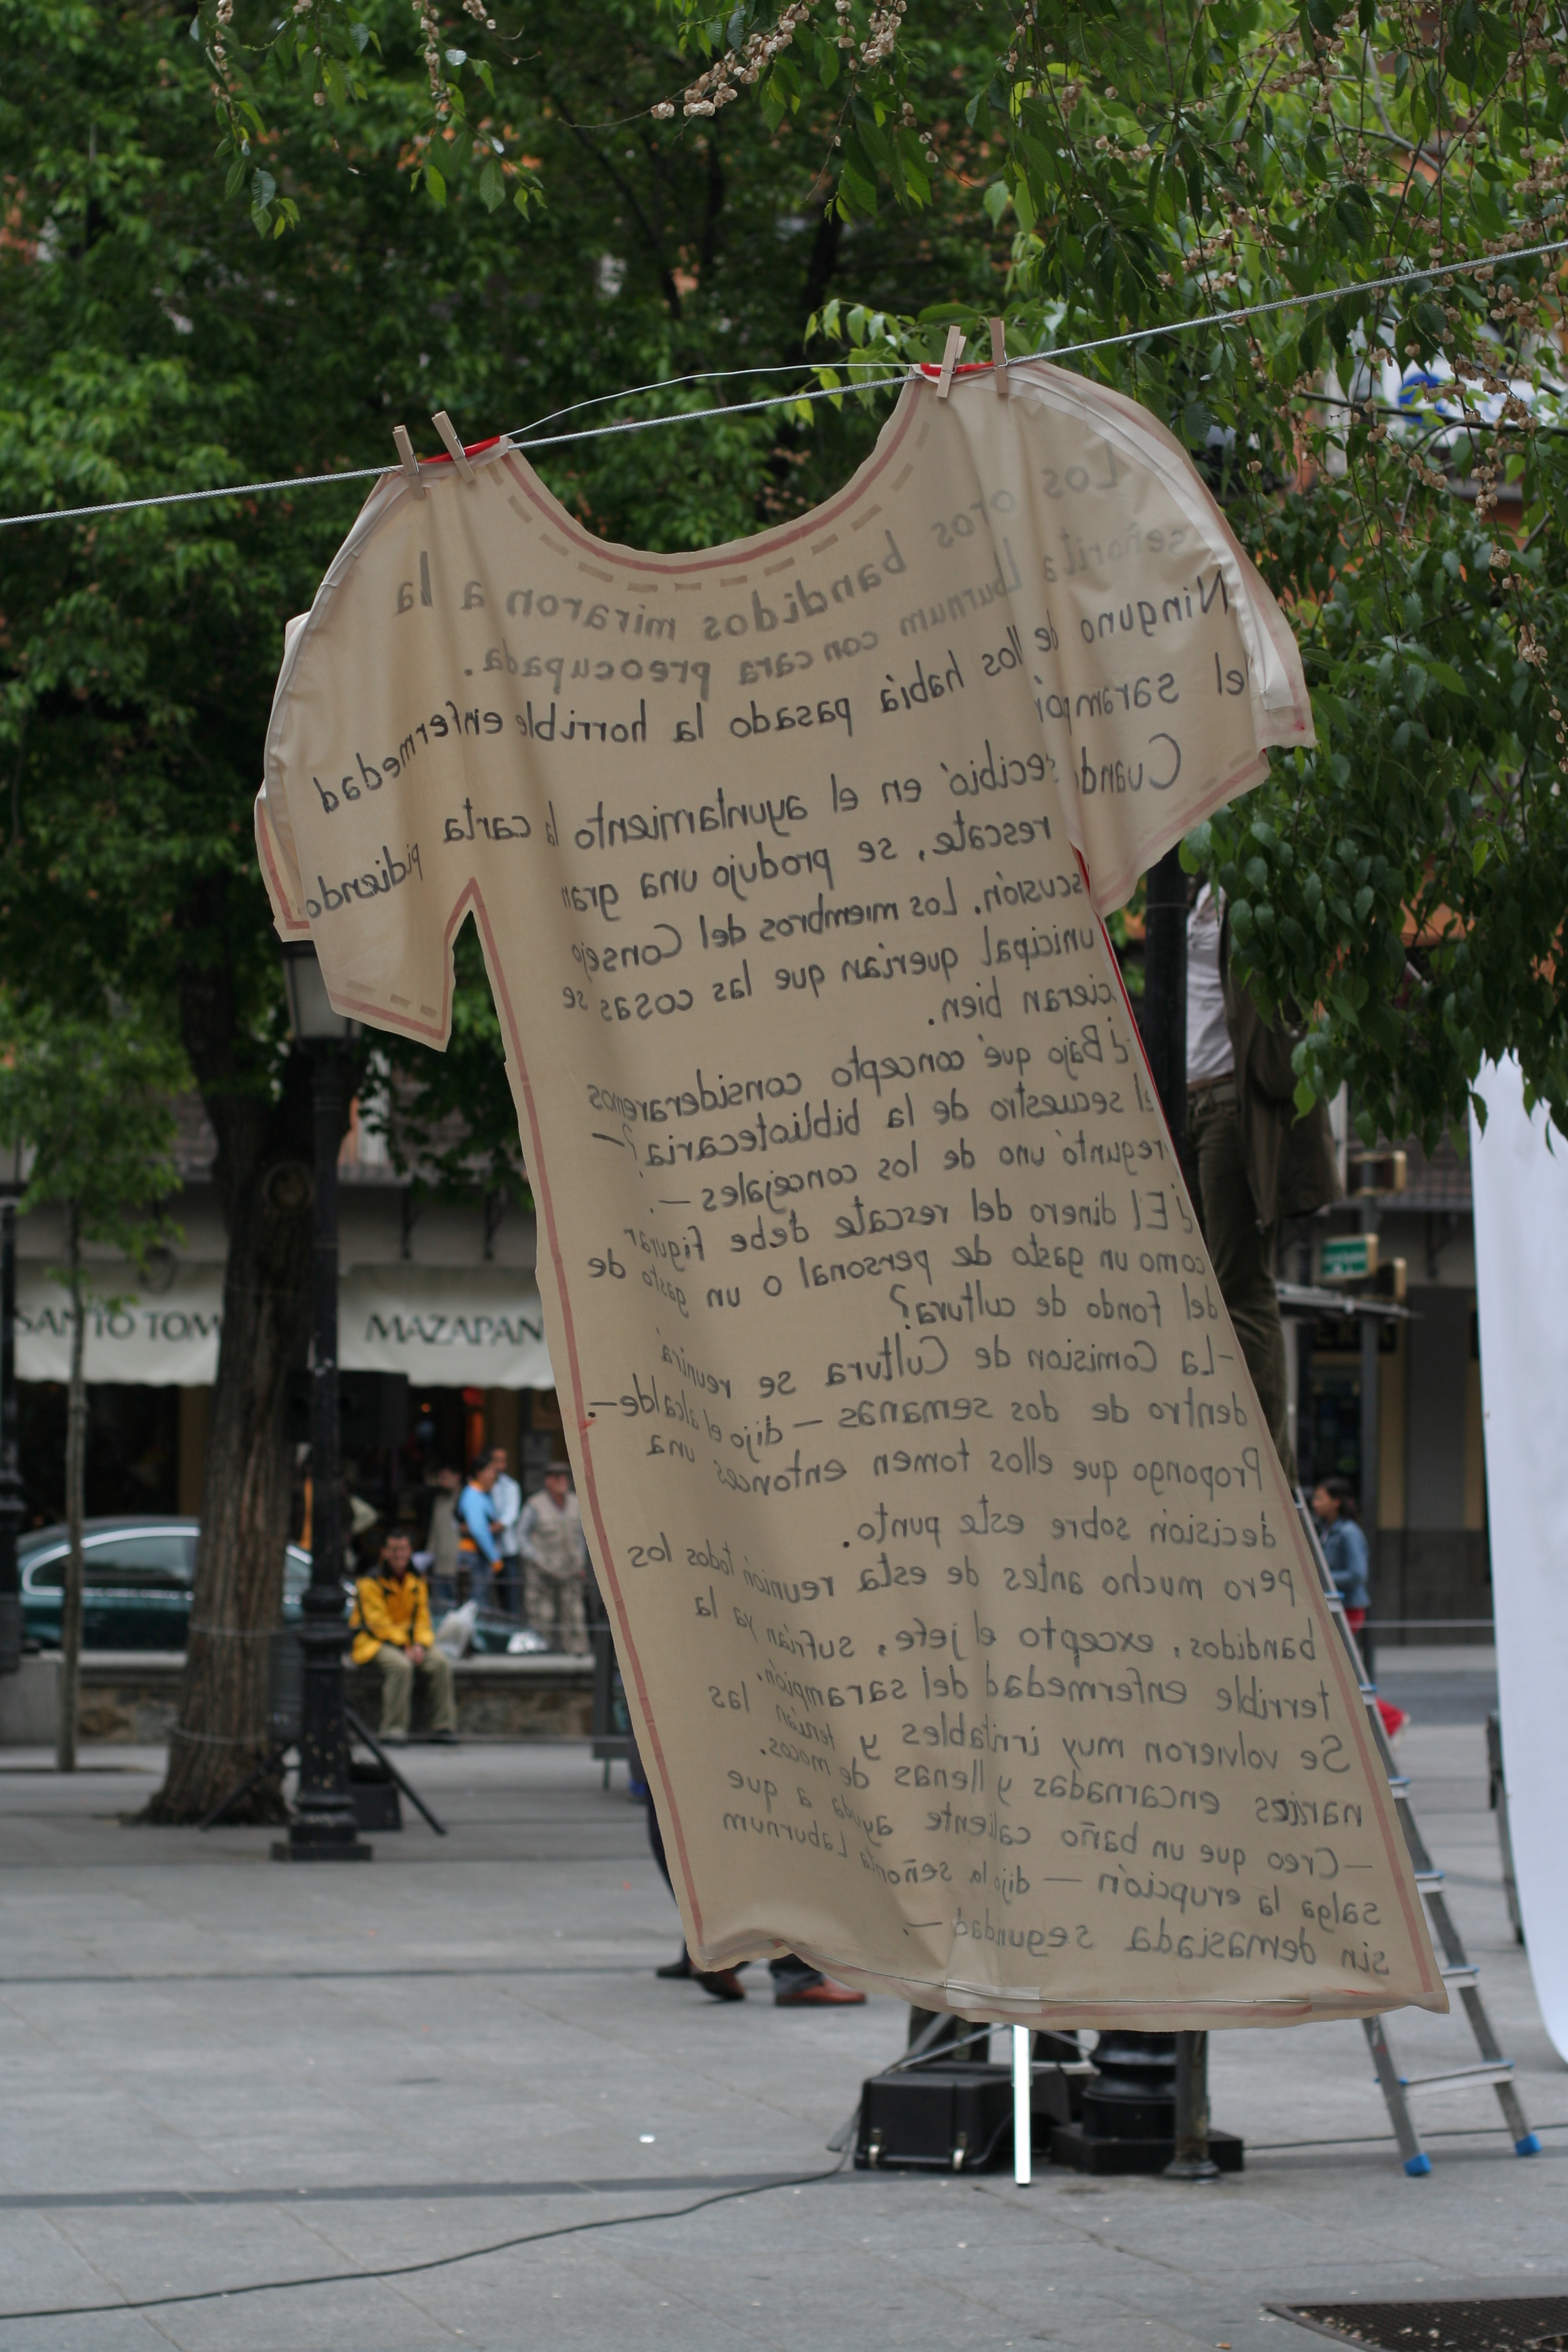 Los otros bandidos miraron a la
señorita Laburnum con cara preocupada.
Ninguno de ellos había pasado la horrible enfermedad
del sarampión
Cuando recibió en el ayuntamiento la carta pidiendo
rescate, se produjo una gran
discusión. Los miembros del Consejo
municipal querían que las cosas se
hicieran bien.
¿Bajo qué concepto consideraremos
el secuestro de la bibliotecaria? —
preguntó uno de los concejales —.
¿El dinero del rescate debe figurar
como un gasto de personal o un gasto de
del fondo de cultura?
-La Comision de Cultura se reunirá
dentro de dos semanas — dijo el alcalde —.
Propongo que ellos tomen entonces una
decisión sobre este punto.
Pero mucho antes de esta reunión todos los
bandidos, excepto el jefe, sufrían ya la
terrible enfermedad del sarampión.
Se volvieron muy irritables y tenían las
narices encarnadas y llenas de mocos.
—Creo que un baño caliente ayuda a que
salga la erupción — dijo la señorita Laburnum
sin demasiada seguridad —.
SANTO TOM
MAZAPAN